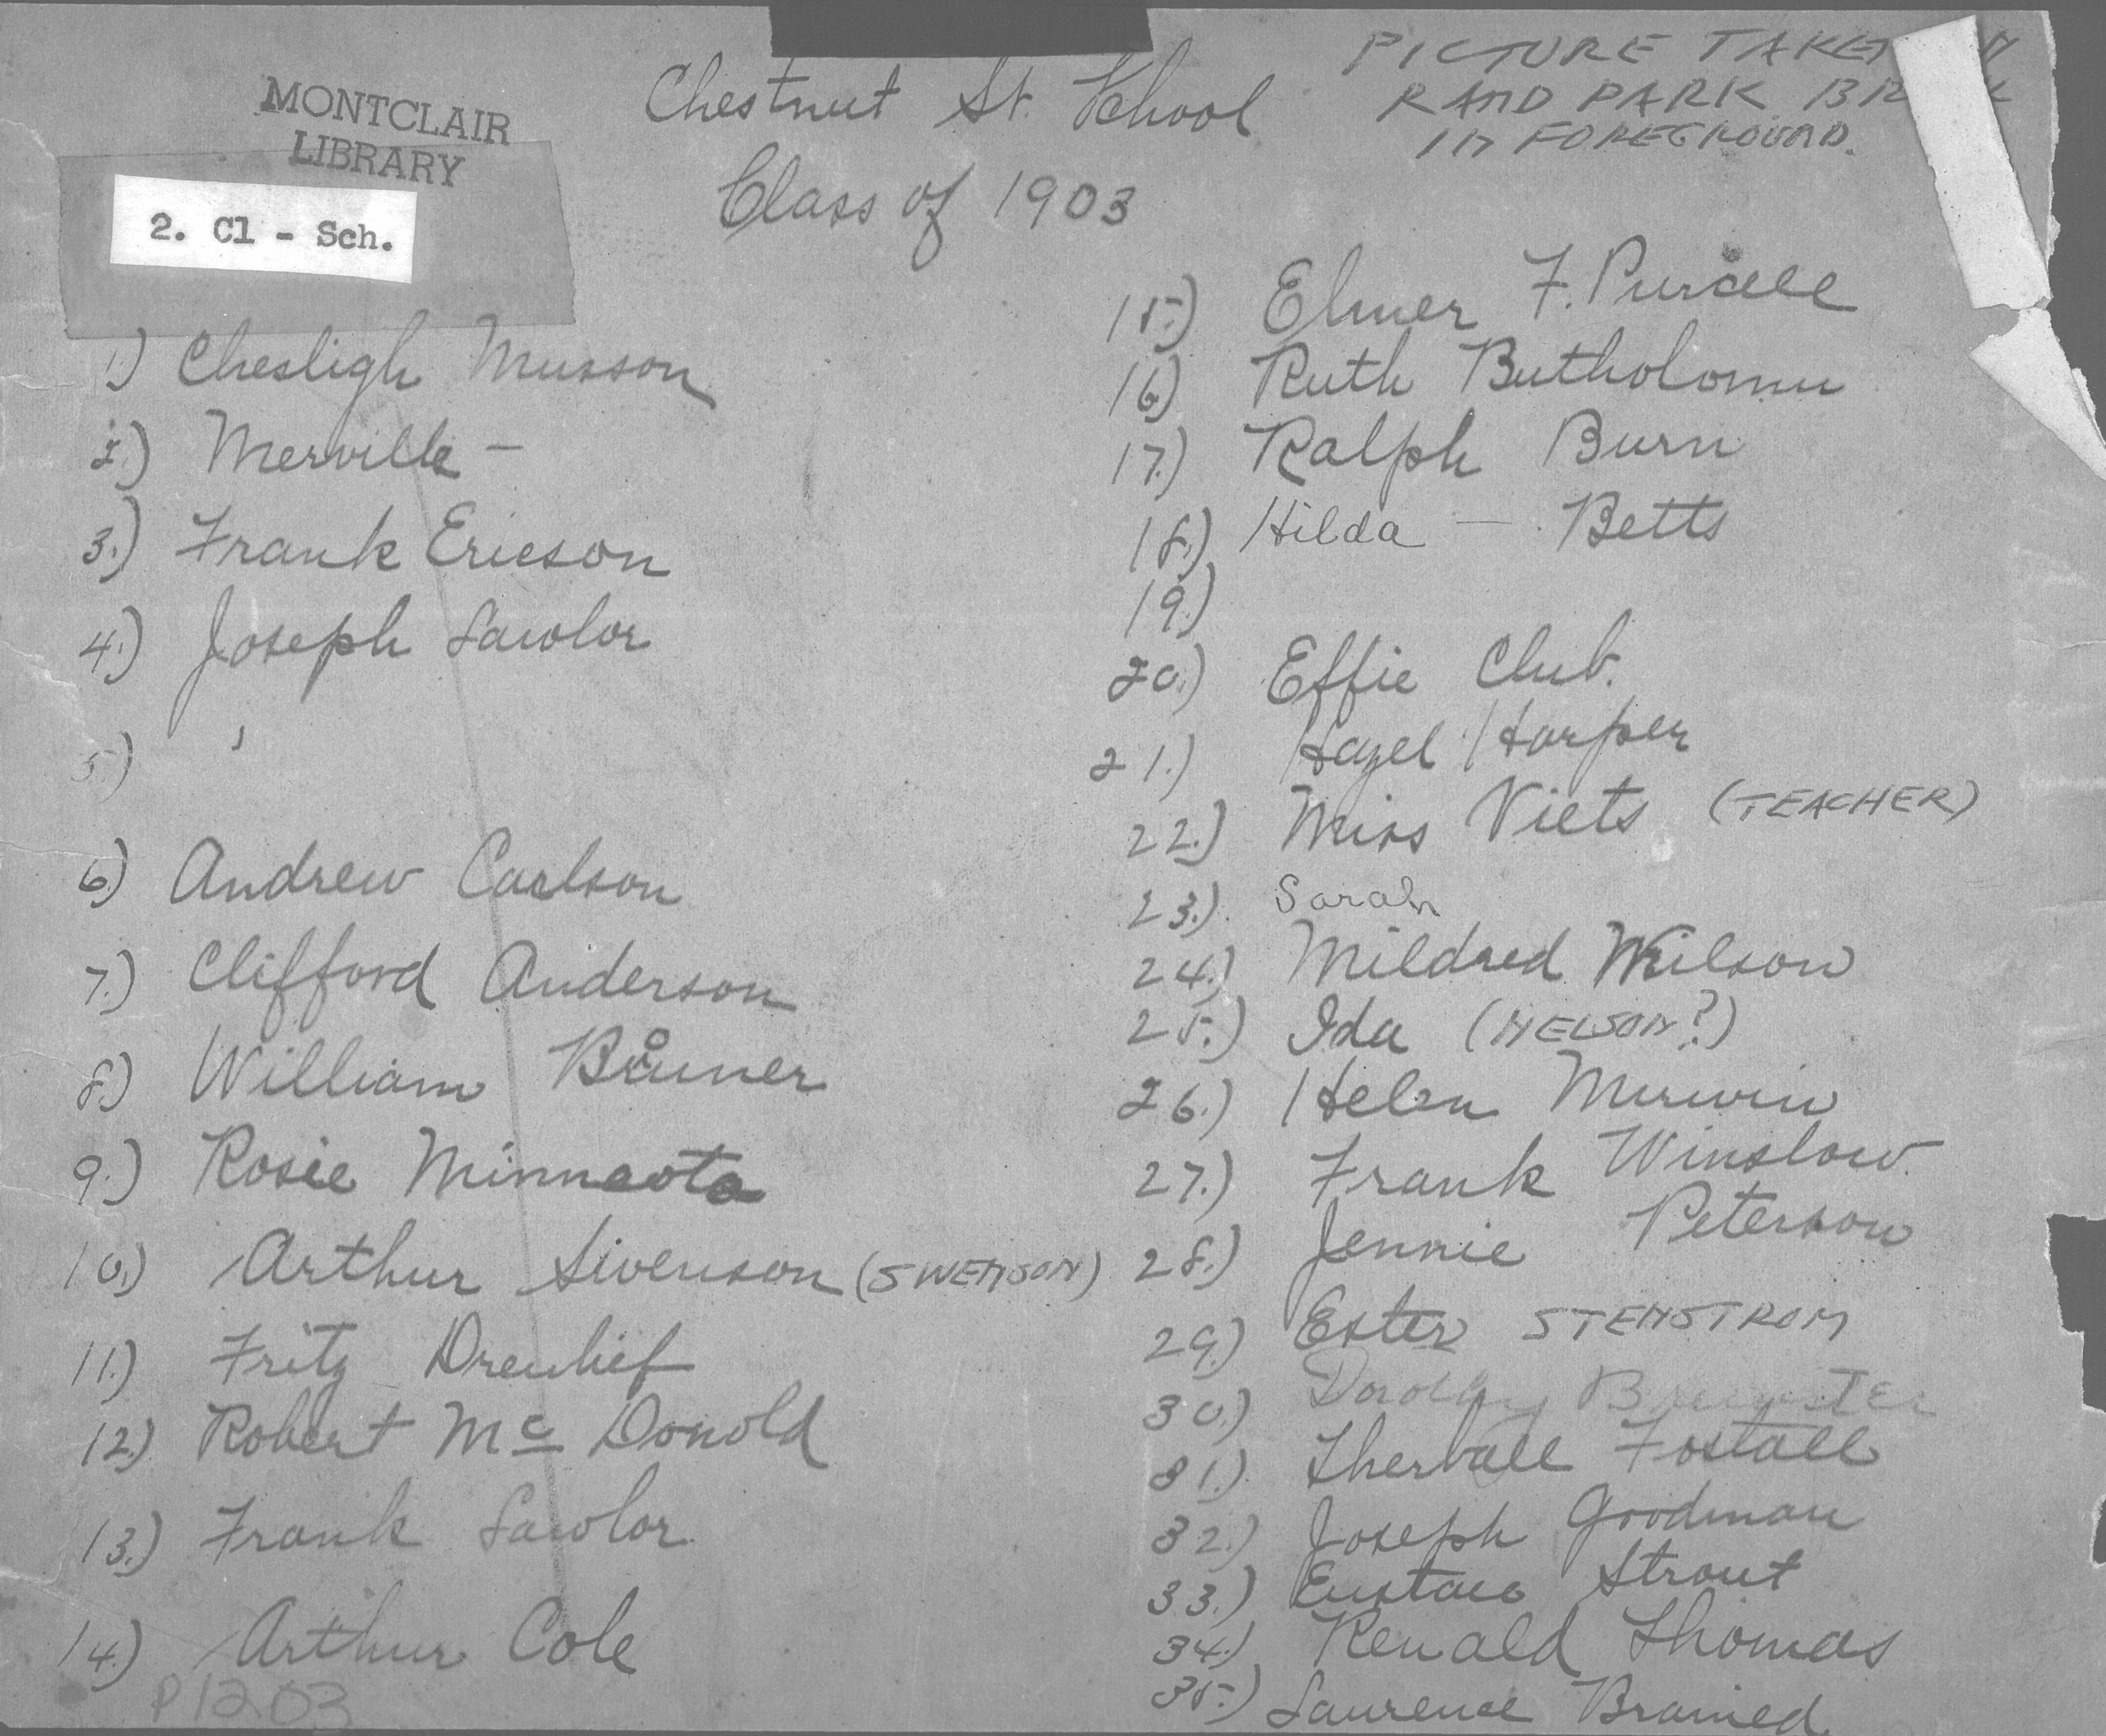 MONTCLAIR
LIBRARY
2. Cl - Sch.
Chestnut St. School
Class of 1903
PICTURE TAKEN
RAND PARK
IN FOREGROUND.
1.) Chesligh Musson
2.) Merville -
3.) Frank Ericson
4.) Joseph Lawlor
5.)
6.) Andrew Carlson
7.) Clifford Anderson
8.) William
9.) Rosie
10.) Arthur Swenson (SWENSON)
11.) Fritz
12.) Robert Mc Donold
13.) Frank Lawlor
14.) Arthur Cole
P1203
15.) Elmer F. Purcell
16.) Ruth Butholomu
17.) Ralph Burn
18.) Hilda - Betts
19.)
20.) Effie Club.
21.) Hazel Harper
22.) Miss Viets (TEACHER)
23.) Sarah
24.) Mildred Wilson
25.) Ida (NELSON?)
26.) Helen Merwin
27.) Frank Winslow
28.) Jennie Peterson
29.) Ester STENSTROM
30.) Dorothy Brewster
31.) Fostall
32.) Joseph Goodman
33.) Eustace Strout
34.) Renald Thomas
35.) Laurence Brained